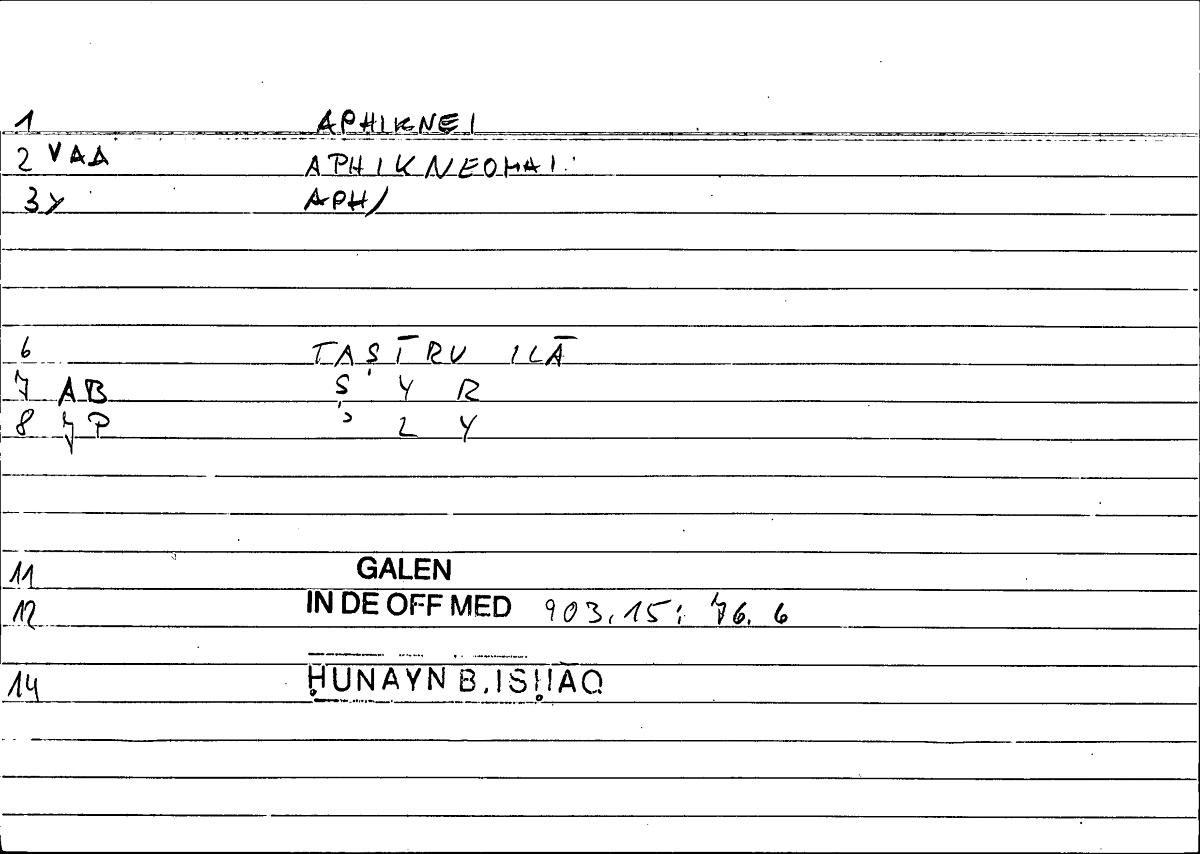 1 APHIKNEI
2 VAA APHIKNEOMAI:
3Y APH/
6 TAṢĪRU ILĀ
7 AB Ṣ Y R
8 7P ʾ L Y
11 GALEN
12 IN DE OFF MED 903,15: 76.6
14 ḤUNAYN B.ISḤĀQ